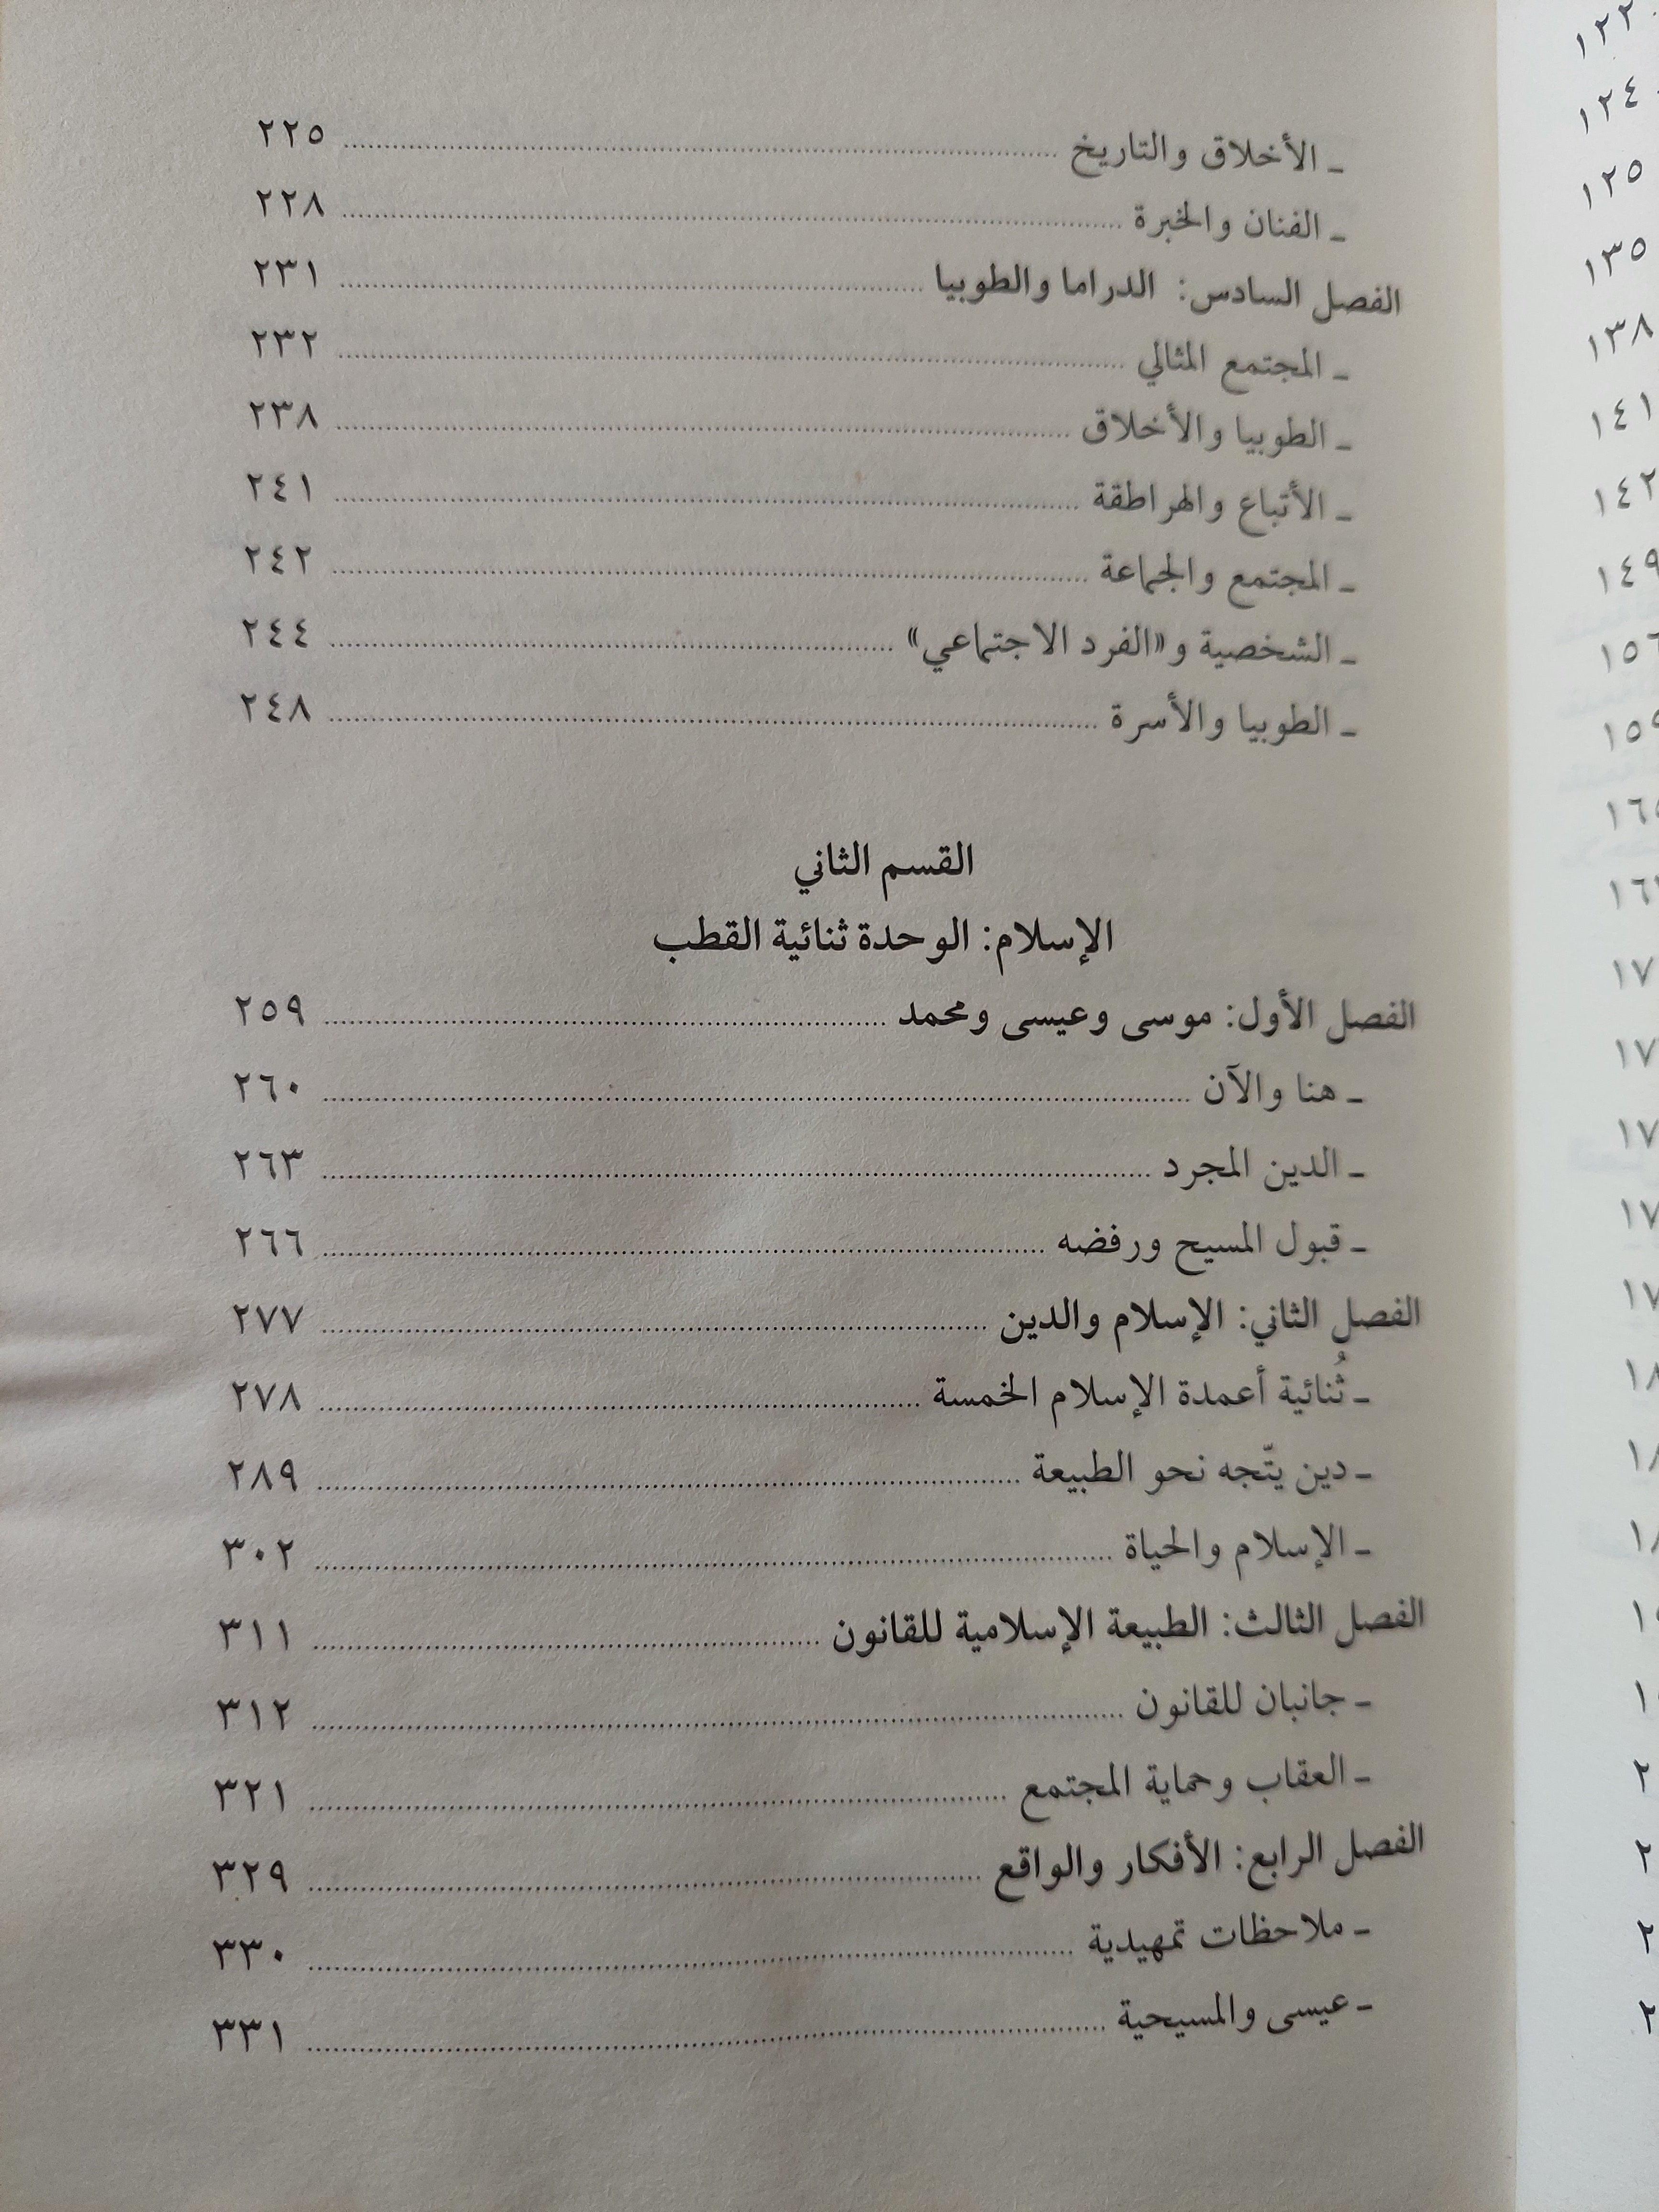 ـ الأخلاق والتاريخ ........ ٢٢٥
ـ الفنان والخبرة ........ ٢٢٨
الفصل السادس: الدراما والطوبيا ........ ٢٣١
ـ المجتمع المثالي ........ ٢٣٢
ـ الطوبيا والأخلاق ........ ٢٣٨
ـ الأتباع والهراطقة ........ ٢٤١
ـ المجتمع والجماعة ........ ٢٤٢
ـ الشخصية و«الفرد الاجتماعي» ........ ٢٤٤
ـ الطوبيا والأسرة ........ ٢٤٨
القسم الثاني
الإسلام: الوحدة ثنائية القطب
الفصل الأول: موسى وعيسى ومحمد ........ ٢٥٩
ـ هنا والآن ........ ٢٦٠
ـ الدين المجرد ........ ٢٦٣
ـ قبول المسيح ورفضه ........ ٢٦٦
الفصل الثاني: الإسلام والدين ........ ٢٧٧
ـ ثُنائية أعمدة الإسلام الخمسة ........ ٢٧٨
ـ دين يتّجه نحو الطبيعة ........ ٢٨٩
ـ الإسلام والحياة ........ ٣٠٢
الفصل الثالث: الطبيعة الإسلامية للقانون ........ ٣١١
ـ جانبان للقانون ........ ٣١٢
ـ العقاب وحماية المجتمع ........ ٣٢١
الفصل الرابع: الأفكار والواقع ........ ٣٢٩
ـ ملاحظات تمهيدية ........ ٣٣٠
ـ عيسى والمسيحية ........ ٣٣١
١٢٢
١٢٤
١٢٥
١٣٥
١٣٨
١٤١
١٤٢
١٤٩
١٥٦